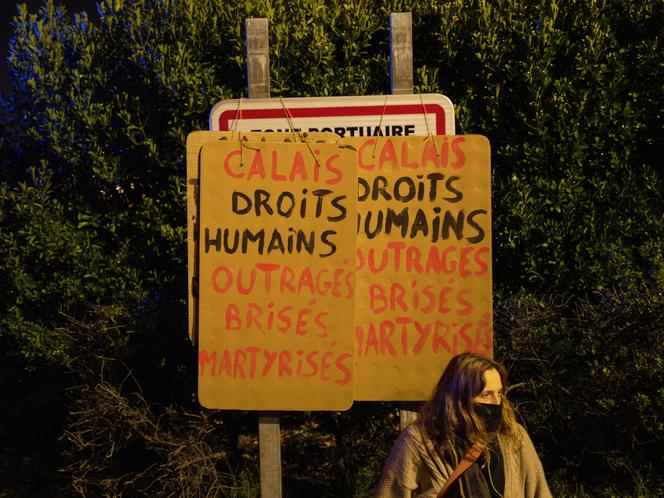 ZONE PORTUAIRE
CALAIS
DROITS
HUMAINS
OUTRAGÉS
BRISÉS
MARTYRISÉS
CALAIS
DROITS
HUMAINS
OUTRAGÉS
BRISÉS
MARTYRISÉS